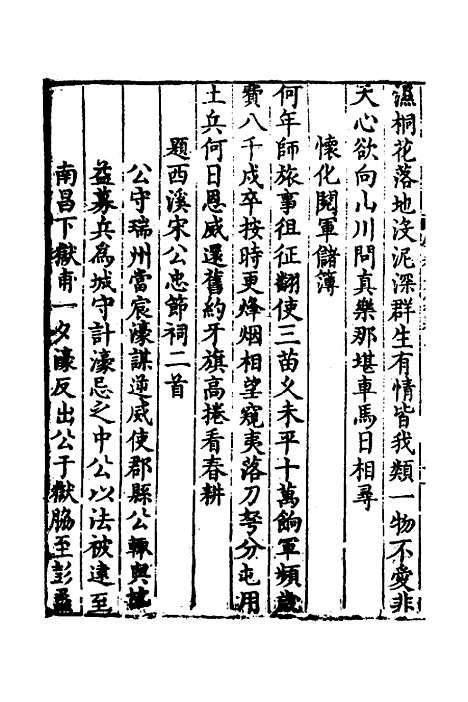 濕桐花落地沒泥深群生有情皆我類一物不愛非
天心欲向山川問真樂那堪車馬日相尋
懷化閱軍儲簿
何年師旅事徂征翻使三苗久未平十萬餉軍頻歲
費八千戍卒按時更烽烟相望窺夷落刀弩分屯用
土兵何日恩威還舊約牙旗高捲看春耕
題西溪宋公忠節祠二首
公守瑞州當宸濠謀逆威使郡縣公輒與抗
益募兵爲城守計濠忌之中公以法被逮至
南昌下獄甫一夕濠反出公于獄脇至彭蠡